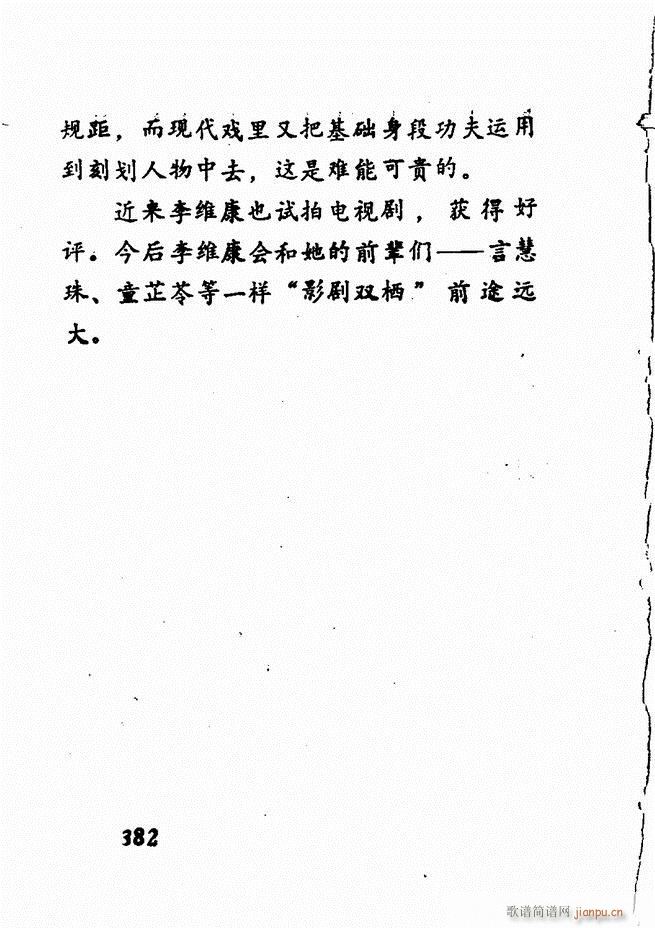 规距，而现代戏里又把基础身段功夫运用
到刻划人物中去，这是难能可贵的。
近来李维康也试拍电视剧，获得好
评。今后李维康会和她的前辈们——言慧
珠、童芷苓等一样“影剧双栖”前途远
大。
382
歌谱简谱网 jianpu.cn